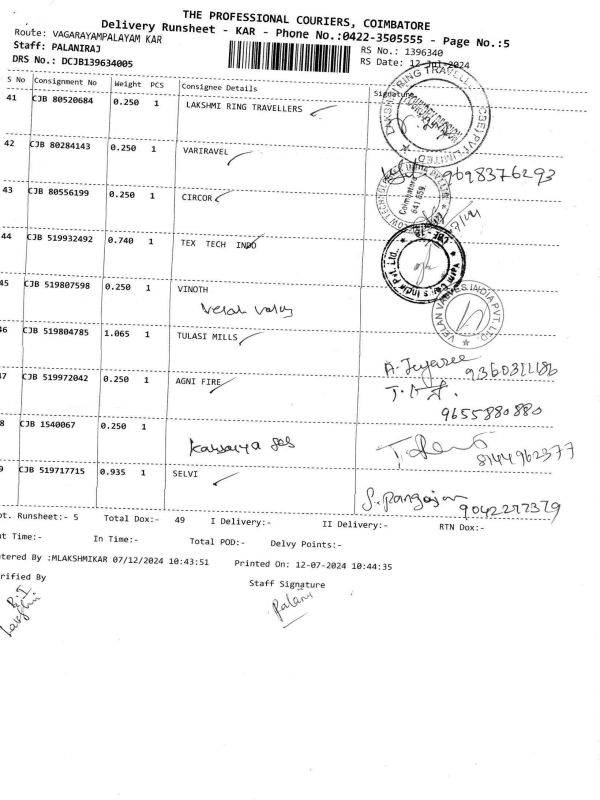 THE PROFESSIONAL COURIERS, COIMBATORE
Delivery Runsheet - KAR - Phone No.:0422-3505555 - Page No.:5
Route: VAGARAYAMPALAYAM KAR
RS No.: 1396340
Staff: PALANIRAJ
RS Date: 12-Jul-2024
DRS No.: DCJB139634005
S No Consignment No Weight PCS Consignee Details Signature
41 CJB 80520684 0.250 1 LAKSHMI RING TRAVELLERS
LAKSHMI RING TRAVELLERS (CBE) PVT LIMITED
42 CJB 80284143 0.250 1 VARIRAVEL
9698376293
43 CJB 80556199 0.250 1 CIRCOR
Coimbatore
641 659
44 CJB 519932492 0.740 1 TEX TECH INDO
45 CJB 519807598 0.250 1 VINOTH
Velan Valves
VELAN VALVES INDIA PVT. LTD.
46 CJB 519804785 1.065 1 TULASI MILLS
A. Jeyasree 9360311186
47 CJB 519972042 0.250 1 AGNI FIRE
9655880880
8 CJB 1540067 0.250 1
8144962377
9 CJB 519717715 0.935 1 SELVI
S. Rangajan 9042277379
ot. Runsheet:- 5 Total Dox:- 49 I Delivery:- II Delivery:- RTN Dox:-
ut Time:- In Time:- Total POD:- Delvy Points:-
ntered By :MLAKSHMIKAR 07/12/2024 10:43:51 Printed On: 12-07-2024 10:44:35
erified By Staff Signature
Palani